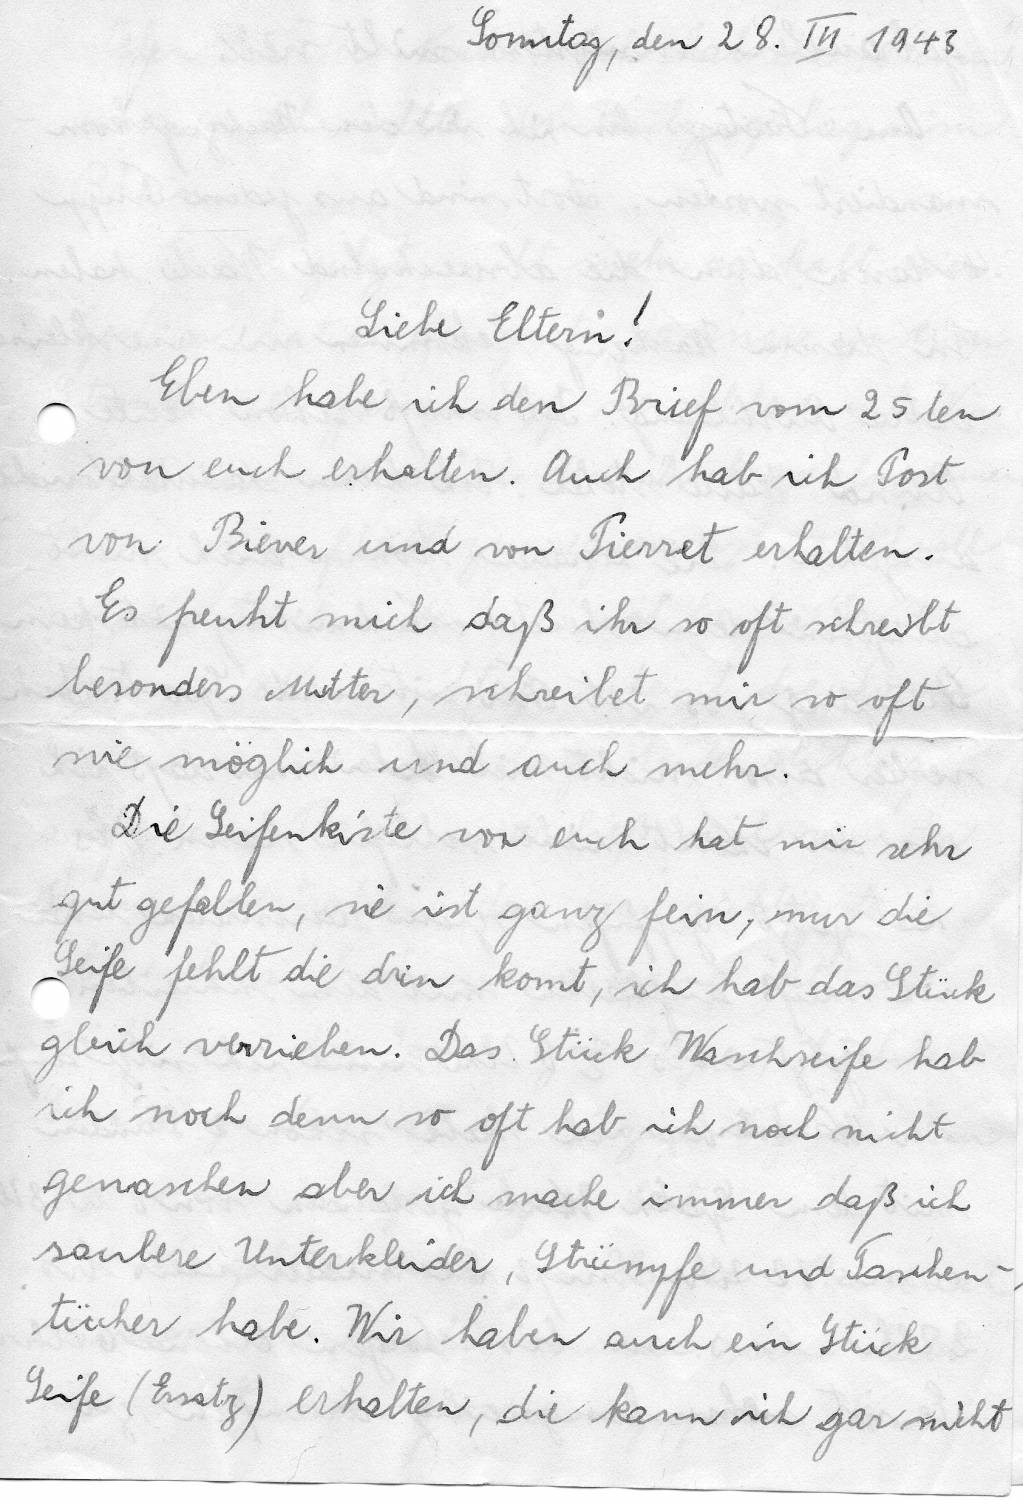 Sonntag, den 28. III 1943
Liebe Eltern!
Eben habe ich den Brief vom 25ten
von euch erhalten. Auch hab ich Post
von Biever und von Pierret erhalten.
Es freuht mich daß ihr so oft schreibt
besonders Mutter, schreibet mir so oft
wie möglich und auch mehr.
Die Seifenkiste von euch hat mir sehr
gut gefallen, sie ist ganz fein, nur die
Seife fehlt die drin komt, ich hab das Stück
gleich verrieben. Das Stück Waschseife hab
ich noch denn so oft hab ich noch nicht
gewaschen aber ich mache immer daß ich
saubere Unterkleider, Strümpfe und Taschen-
tücher habe. Wir haben auch ein Stück
Seife (Ersatz) erhalten, die kann ich gar nicht